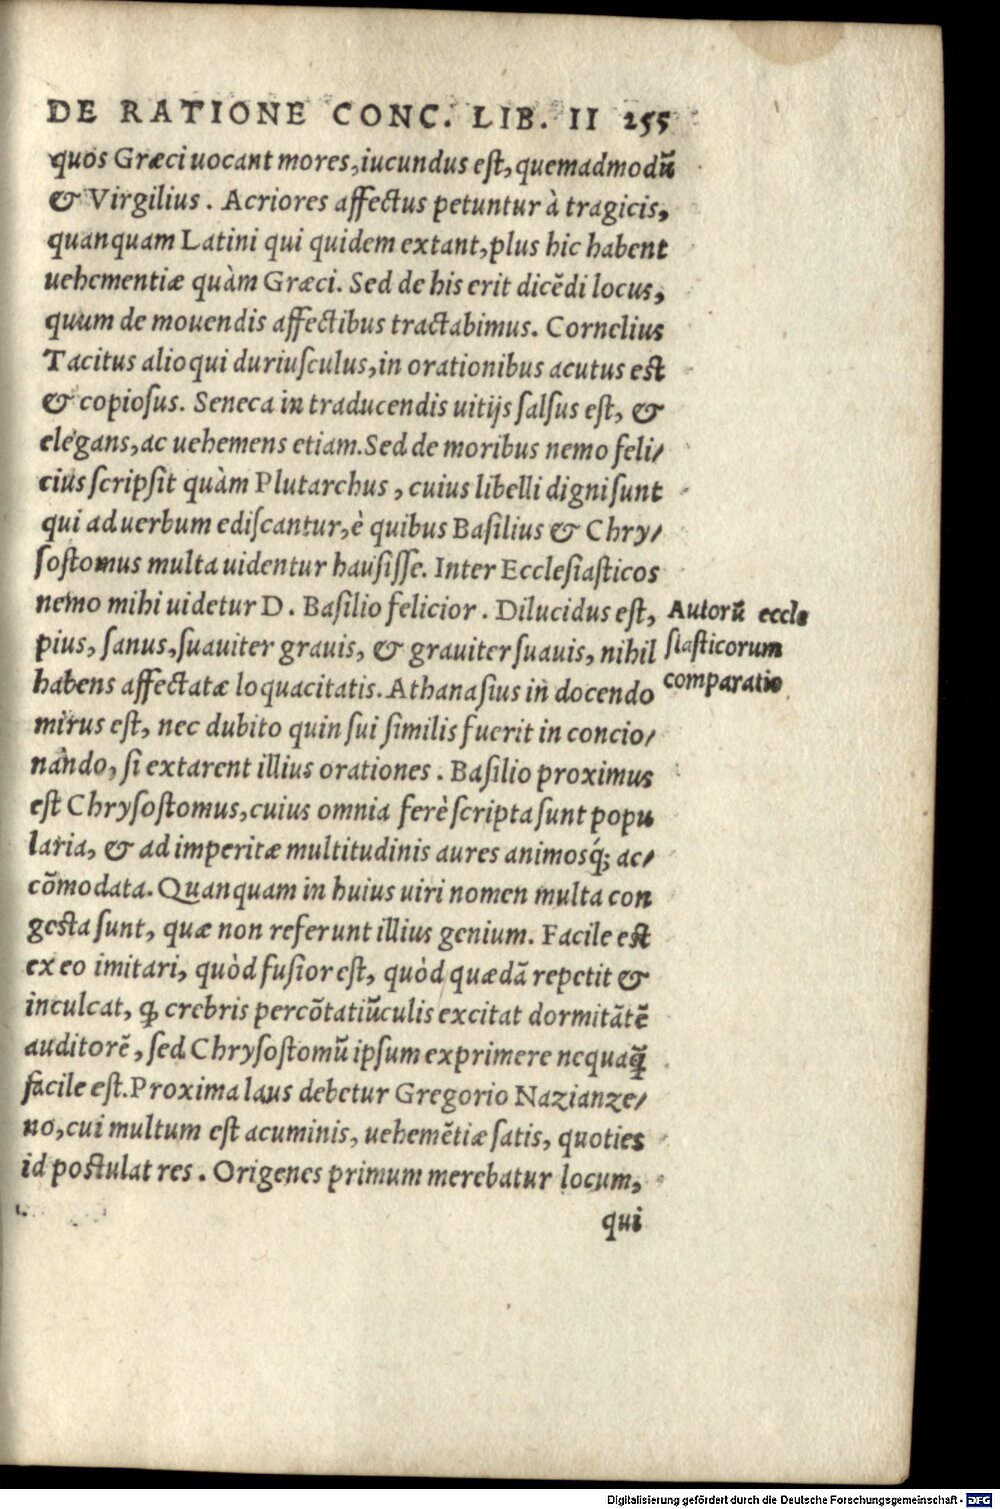 DE RATIONE CONC. LIB. II 255
quos Græci uocant mores, iucundus eſt, quemadmodū
& Virgilius. Acriores affectus petuntur à tragicis,
quanquam Latini qui quidem extant, plus hic habent
uehementiæ quàm Græci. Sed de his erit dicēdi locus,
quum de mouendis affectibus tractabimus. Cornelius
Tacitus alioqui duriuſculus, in orationibus acutus est
& copioſus. Seneca in traducendis uitijs ſalſus eſt, &
elegans, ac uehemens etiam. Sed de moribus nemo feli/
cius ſcripſit quàm Plutarchus, cuius libelli digni ſunt
qui ad uerbum ediſcantur, è quibus Baſilius & Chry/
ſoſtomus multa uidentur hauſiſſe. Inter Eccleſiaſticos
nemo mihi uidetur D. Baſilio felicior. Dilucidus eſt,
pius, ſanus, ſuauiter grauis, & grauiter ſuauis, nihil
habens affectatæ loquacitatis. Athanaſius in docendo
mirus eſt, nec dubito quin ſui ſimilis fuerit in concio/
nando, ſi extarent illius orationes. Baſilio proximus
eſt Chryſoſtomus, cuius omnia ferè ſcripta ſunt popu
laria, & ad imperitæ multitudinis aures animosq́; ac/
cōmodata. Quanquam in huius uiri nomen multa con
gesta ſunt, quæ non referunt illius genium. Facile est
ex eo imitari, quòd fuſior eſt, quòd quædā repetit &
inculcat, ꝙ crebris percōtatiūculis excitat dormitātē
auditorē, ſed Chryſoſtomū ipſum exprimere nequaꝙ̄
facile eſt. Proxima laus debetur Gregorio Nazianze/
no, cui multum eſt acuminis, uehemētiæ ſatis, quoties
id poſtulat res. Origenes primum merebatur locum,
qui
Autorū eccle
ſiaſticorum
comparatio
Digitalisierung gefördert durch die Deutsche Forschungsgemeinschaft - DFG